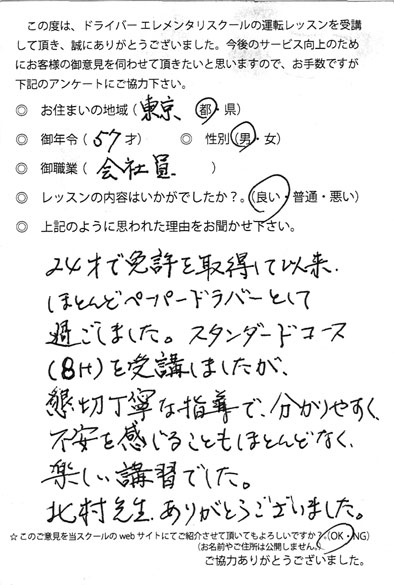 この度は、ドライバー エレメンタリスクールの運転レッスンを受講
して頂き、誠にありがとうございました。今後のサービス向上のため
にお客様の御意見を伺わせて頂きたいと思いますので、お手数ですが
下記のアンケートにご協力下さい。
◎ お住まいの地域（ 東京 都・県）
◎ 御年令（ 57 才） ◎ 性別（男・女）
◎ 御職業（ 会社員 ）
◎ レッスンの内容はいかがでしたか？。（良い・普通・悪い）
◎ 上記のように思われた理由をお聞かせ下さい。
24才で免許を取得して以来、
ほとんどペーパードラバーとして
過ごしました。スタンダードコース
(8H)を受講しましたが、
懇切丁寧な指導で、分かりやすく、
不安を感じることもほとんどなく、
楽しい講習でした。
北村先生、ありがとうございました。
☆このご意見を当スクールの web サイトにてご紹介させて頂いてもよろしいですか？。（OK・NG）
（お名前やご住所は公開しません。）
ご協力ありがとうございました。